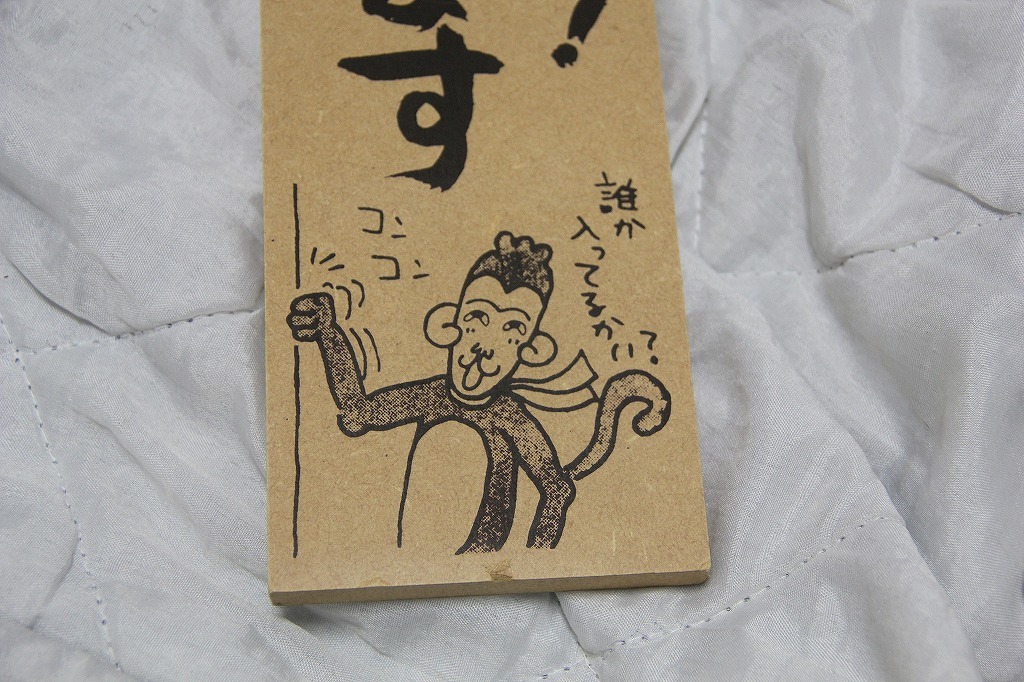 す
！
コン
コン
誰か
入ってるかい？